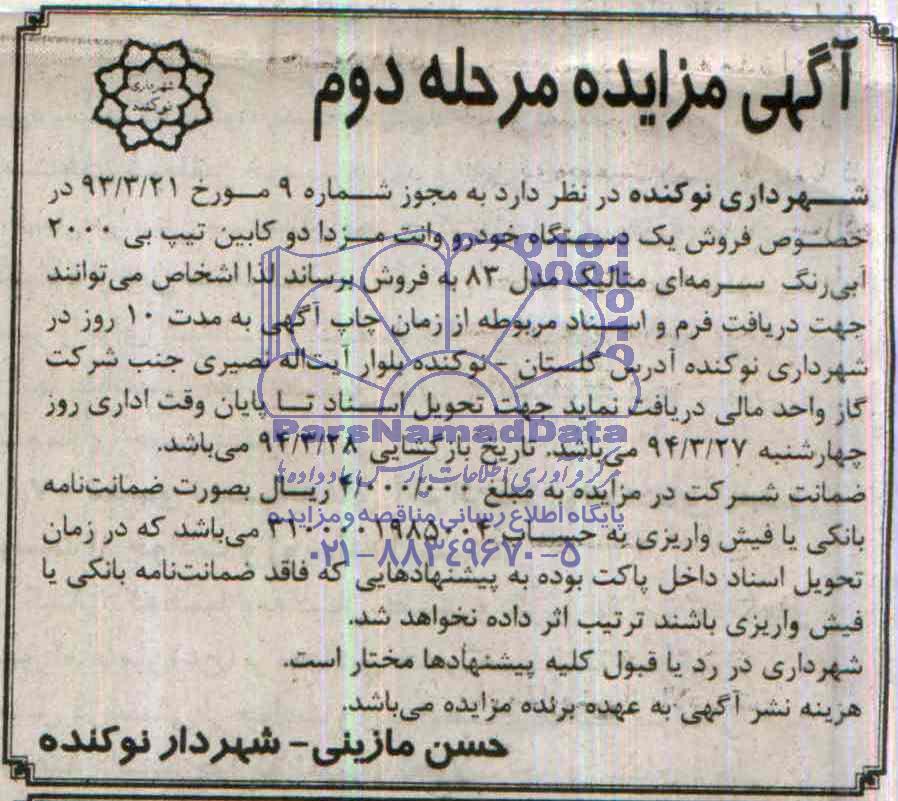 آگهی مزایده مرحله دوم
شهرداری
نوکنده
شهرداری نوکنده در نظر دارد به مجوز شماره ۹ مورخ ۹۳/۳/۲۱ در
خصوص فروش یک دستگاه خودرو وانت مزدا دو کابین تیپ بی ۲۰۰۰
آبی‌رنگ سرمه‌ای متالیک مدل ۸۳ به فروش برساند لذا اشخاص می‌توانند
جهت دریافت فرم و اسناد مربوطه از زمان چاپ آگهی به مدت ۱۰ روز در
شهرداری نوکنده آدرس گلستان - نوکنده بلوار آیت‌اله نصیری جنب شرکت
گاز واحد مالی دریافت نماید جهت تحویل اسناد تا پایان وقت اداری روز
چهارشنبه ۹۴/۳/۲۷ می‌باشد. تاریخ بازگشایی ۹۴/۳/۲۸ می‌باشد.
ParsNamadData
مرکز فرآوری اطلاعات پارس نماد داده‌ها
ضمانت شرکت در مزایده به مبلغ ۴/۰۰۰/۰۰۰ ریال بصورت ضمانت‌نامه
پایگاه اطلاع رسانی مناقصه و مزایده
بانکی یا فیش واریزی به حساب می‌باشد که در زمان
۰۲۱-۸۸۳۴۹۶۷۰-۵
تحویل اسناد داخل پاکت بوده به پیشنهادهایی که فاقد ضمانت‌نامه بانکی یا
فیش واریزی باشند ترتیب اثر داده نخواهد شد.
شهرداری در رد یا قبول کلیه پیشنهادها مختار است.
هزینه نشر آگهی به عهده برنده مزایده می‌باشد.
حسن مازینی- شهردار نوکنده